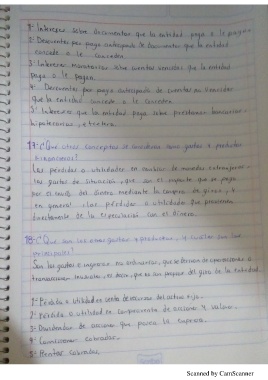 1- Intereses sobre documentos que la entidad paga o le pagan
2- Descuentos por pago anticipado de documentos que la entidad
concede o le conceden
3- Intereses moratorios sobre cuentas vencidas que la entidad
paga o le pagan.
4- Descuentos por pago anticipado de cuentas no vencidas
que la entidad concede o le conceden
5- Intereses que la entidad paga sobre prestamos bancarios
hipotecarios, etcetera
17- ¿Que otros conceptos se consideran como gastos o productos
financieros?
Las pérdidas o utilidades en cambios de monedas extranjeras
los gastos de situación, que son el importe que se paga
por el envio del dinero mediante la compra de giros, y
en general las perdidas o utilidades que provienen
directamente de la especulación con el dinero.
18- ¿Que son los otros gastos y productos, y cuáles son los
principales?
Son los gastos e ingresos no ordinarios, que se derivan de operaciones o
transacciones inusuales, es decir, que no son propias del giro de la entidad
1- Perdida o utilidad en venta de activo fijo.
2- Perdida o utilidad en compraventa de acciones y valores.
3- Dividendos de acciones que posea la empresa.
4- Comisiones cobradas.
5- Rentas cobradas
Scanned by CamScanner